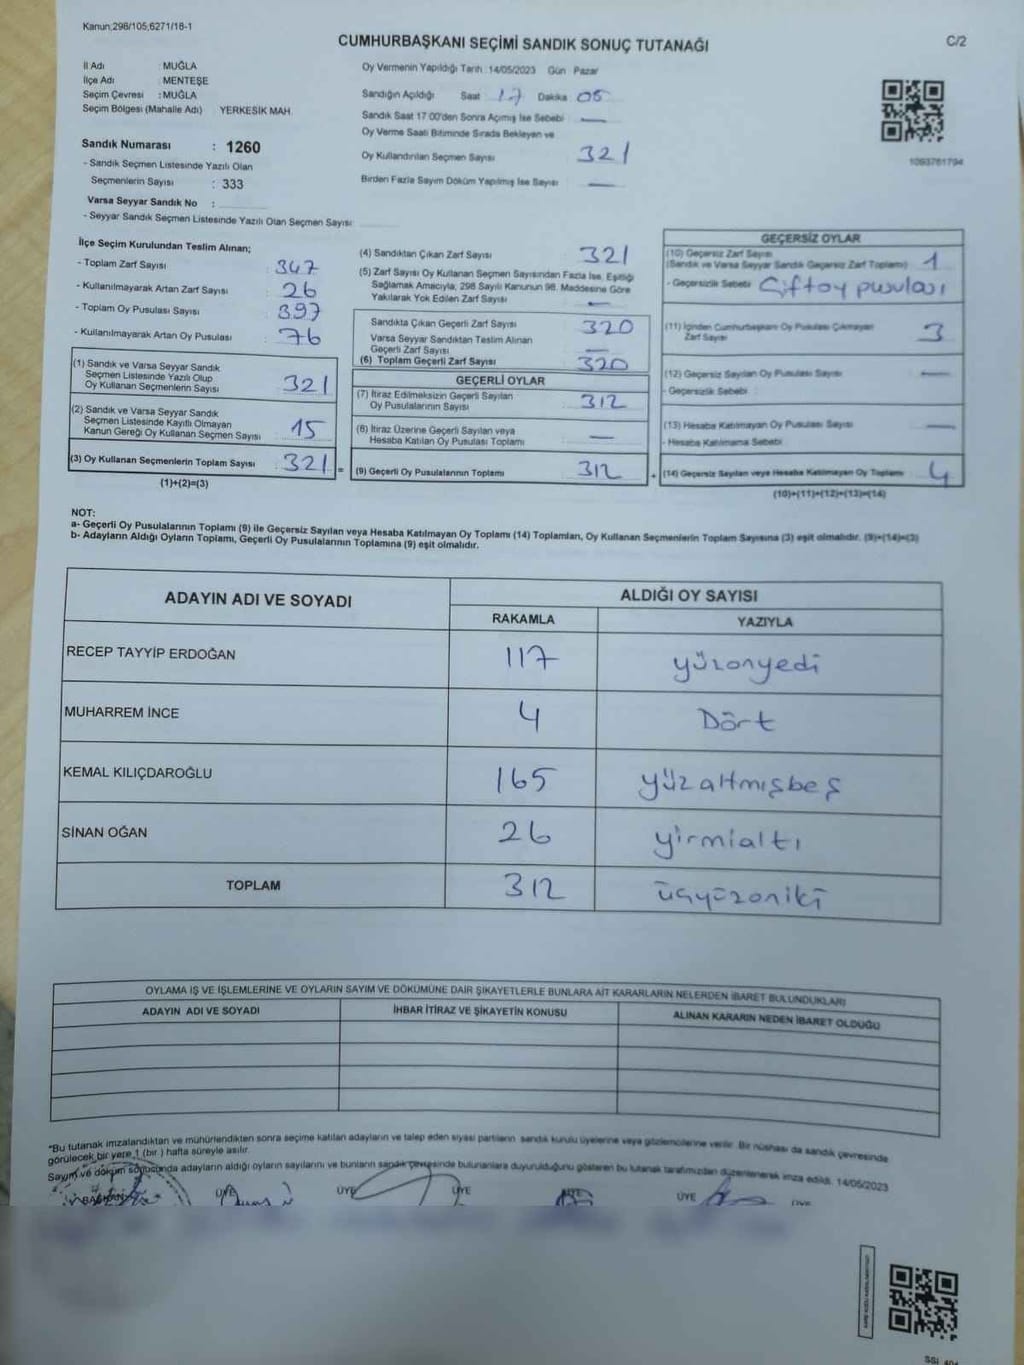 Kanun;298/105;6271/18-1
CUMHURBAŞKANI SEÇİMİ SANDIK SONUÇ TUTANAĞI
C/2
İl Adı : MUĞLA
İlçe Adı : MENTEŞE
Seçim Çevresi : MUĞLA
Seçim Bölgesi (Mahalle Adı) YERKESİK MAH.
Sandık Numarası : 1260
- Sandık Seçmen Listesinde Yazılı Olan
Seçmenlerin Sayısı : 333
Varsa Seyyar Sandık No :
- Seyyar Sandık Seçmen Listesinde Yazılı Olan Seçmen Sayısı
Oy Vermenin Yapıldığı Tarih :14/05/2023 Gün Pazar
Sandığın Açıldığı Saat 17 Dakika 05
Sandık Saat 17:00'den Sonra Açımış İse Sebebi —
Oy Verme Saati Bitiminde Sırada Bekleyen ve
Oy Kullandırılan Seçmen Sayısı 321
Birden Fazla Sayım Döküm Yapılmış İse Sayısı —
1093761794
İlçe Seçim Kurulundan Teslim Alınan;
- Toplam Zarf Sayısı : 347
- Kullanılmayarak Artan Zarf Sayısı : 26
- Toplam Oy Pusulası Sayısı : 397
- Kullanılmayarak Artan Oy Pusulası : 76
(1) Sandık ve Varsa Seyyar Sandık
Seçmen Listesinde Yazılı Olup
Oy Kullanan Seçmenlerin Sayısı : 321
(2) Sandık ve Varsa Seyyar Sandık
Seçmen Listesinde Kayıtlı Olmayan
Kanun Gereği Oy Kullanan Seçmen Sayısı : 15
(3) Oy Kullanan Seçmenlerin Toplam Sayısı : 321 =
(1)+(2)=(3)
(4) Sandıktan Çıkan Zarf Sayısı : 321
(5) Zarf Sayısı Oy Kullanan Seçmen Sayısından Fazla İse, Eşitliği
Sağlamak Amacıyla; 298 Sayılı Kanunun 98. Maddesine Göre
Yakılarak Yok Edilen Zarf Sayısı : —
Sandıkta Çıkan Geçerli Zarf Sayısı : 320
Varsa Seyyar Sandıktan Teslim Alınan
Geçerli Zarf Sayısı : —
(6) Toplam Geçerli Zarf Sayısı : 320
GEÇERLİ OYLAR
(7) İtiraz Edilmeksizin Geçerli Sayılan
Oy Pusulalarının Sayısı : 312
(8) İtiraz Üzerine Geçerli Sayılan veya
Hesaba Katılan Oy Pusulası Toplamı : —
(9) Geçerli Oy Pusulalarının Toplamı : 312 +
GEÇERSİZ OYLAR
(10) Geçersiz Zarf Sayısı
(Sandık ve Varsa Seyyar Sandık Geçersiz Zarf Toplamı) : 1
- Geçersizlik Sebebi : Çift oy pusulası
(11) İçinden Cumhurbaşkanı Oy Pusulası Çıkmayan
Zarf Sayısı : 3
(12) Geçersiz Sayılan Oy Pusulası Sayısı : —
- Geçersizlik Sebebi :
(13) Hesaba Katılmayan Oy Pusulası Sayısı : —
- Hesaba Katılmama Sebebi
(14) Geçersiz Sayılan veya Hesaba Katılmayan Oy Toplamı : 4
(10)+(11)+(12)+(13)=(14)
NOT:
a- Geçerli Oy Pusulalarının Toplamı (9) ile Geçersiz Sayılan veya Hesaba Katılmayan Oy Toplamı (14) Toplamları, Oy Kullanan Seçmenlerin Toplam Sayısına (3) eşit olmalıdır. (9)+(14)=(3)
b- Adayların Aldığı Oyların Toplamı, Geçerli Oy Pusulalarının Toplamına (9) eşit olmalıdır.
ADAYIN ADI VE SOYADI
ALDIĞI OY SAYISI
RAKAMLA YAZIYLA
RECEP TAYYİP ERDOĞAN 117 yüzonyedi
MUHARREM İNCE 4 Dört
KEMAL KILIÇDAROĞLU 165 yüzaltmışbeş
SİNAN OĞAN 26 yirmialtı
TOPLAM 312 üçyüzoniki
OYLAMA İŞ VE İŞLEMLERİNE VE OYLARIN SAYIM VE DÖKÜMÜNE DAİR ŞİKAYETLERLE BUNLARA AİT KARARLARIN NELERDEN İBARET BULUNDUKLARI
ADAYIN ADI VE SOYADI İHBAR İTİRAZ VE ŞİKAYETİN KONUSU ALINAN KARARIN NEDEN İBARET OLDUĞU
*Bu tutanak imzalandıktan ve mühürlendikten sonra seçime katılan adayların ve talep eden siyasi partilerin sandık kurulu üyelerine veya gözlemcilerine verilir. Bir nüshası da sandık çevresinde
görülecek bir yere 1 (bir ) hafta süreyle asılır.
Sayım ve döküm sonucunda adayların aldığı oyların sayılarını ve bunların sandık çevresinde bulunanlara duyurulduğunu gösteren bu tutanak tarafımızdan düzenlenerek imza edildi. 14/05/2023
BAŞKAN ÜYE ÜYE ÜYE ÜYE ÜYE ÜYE